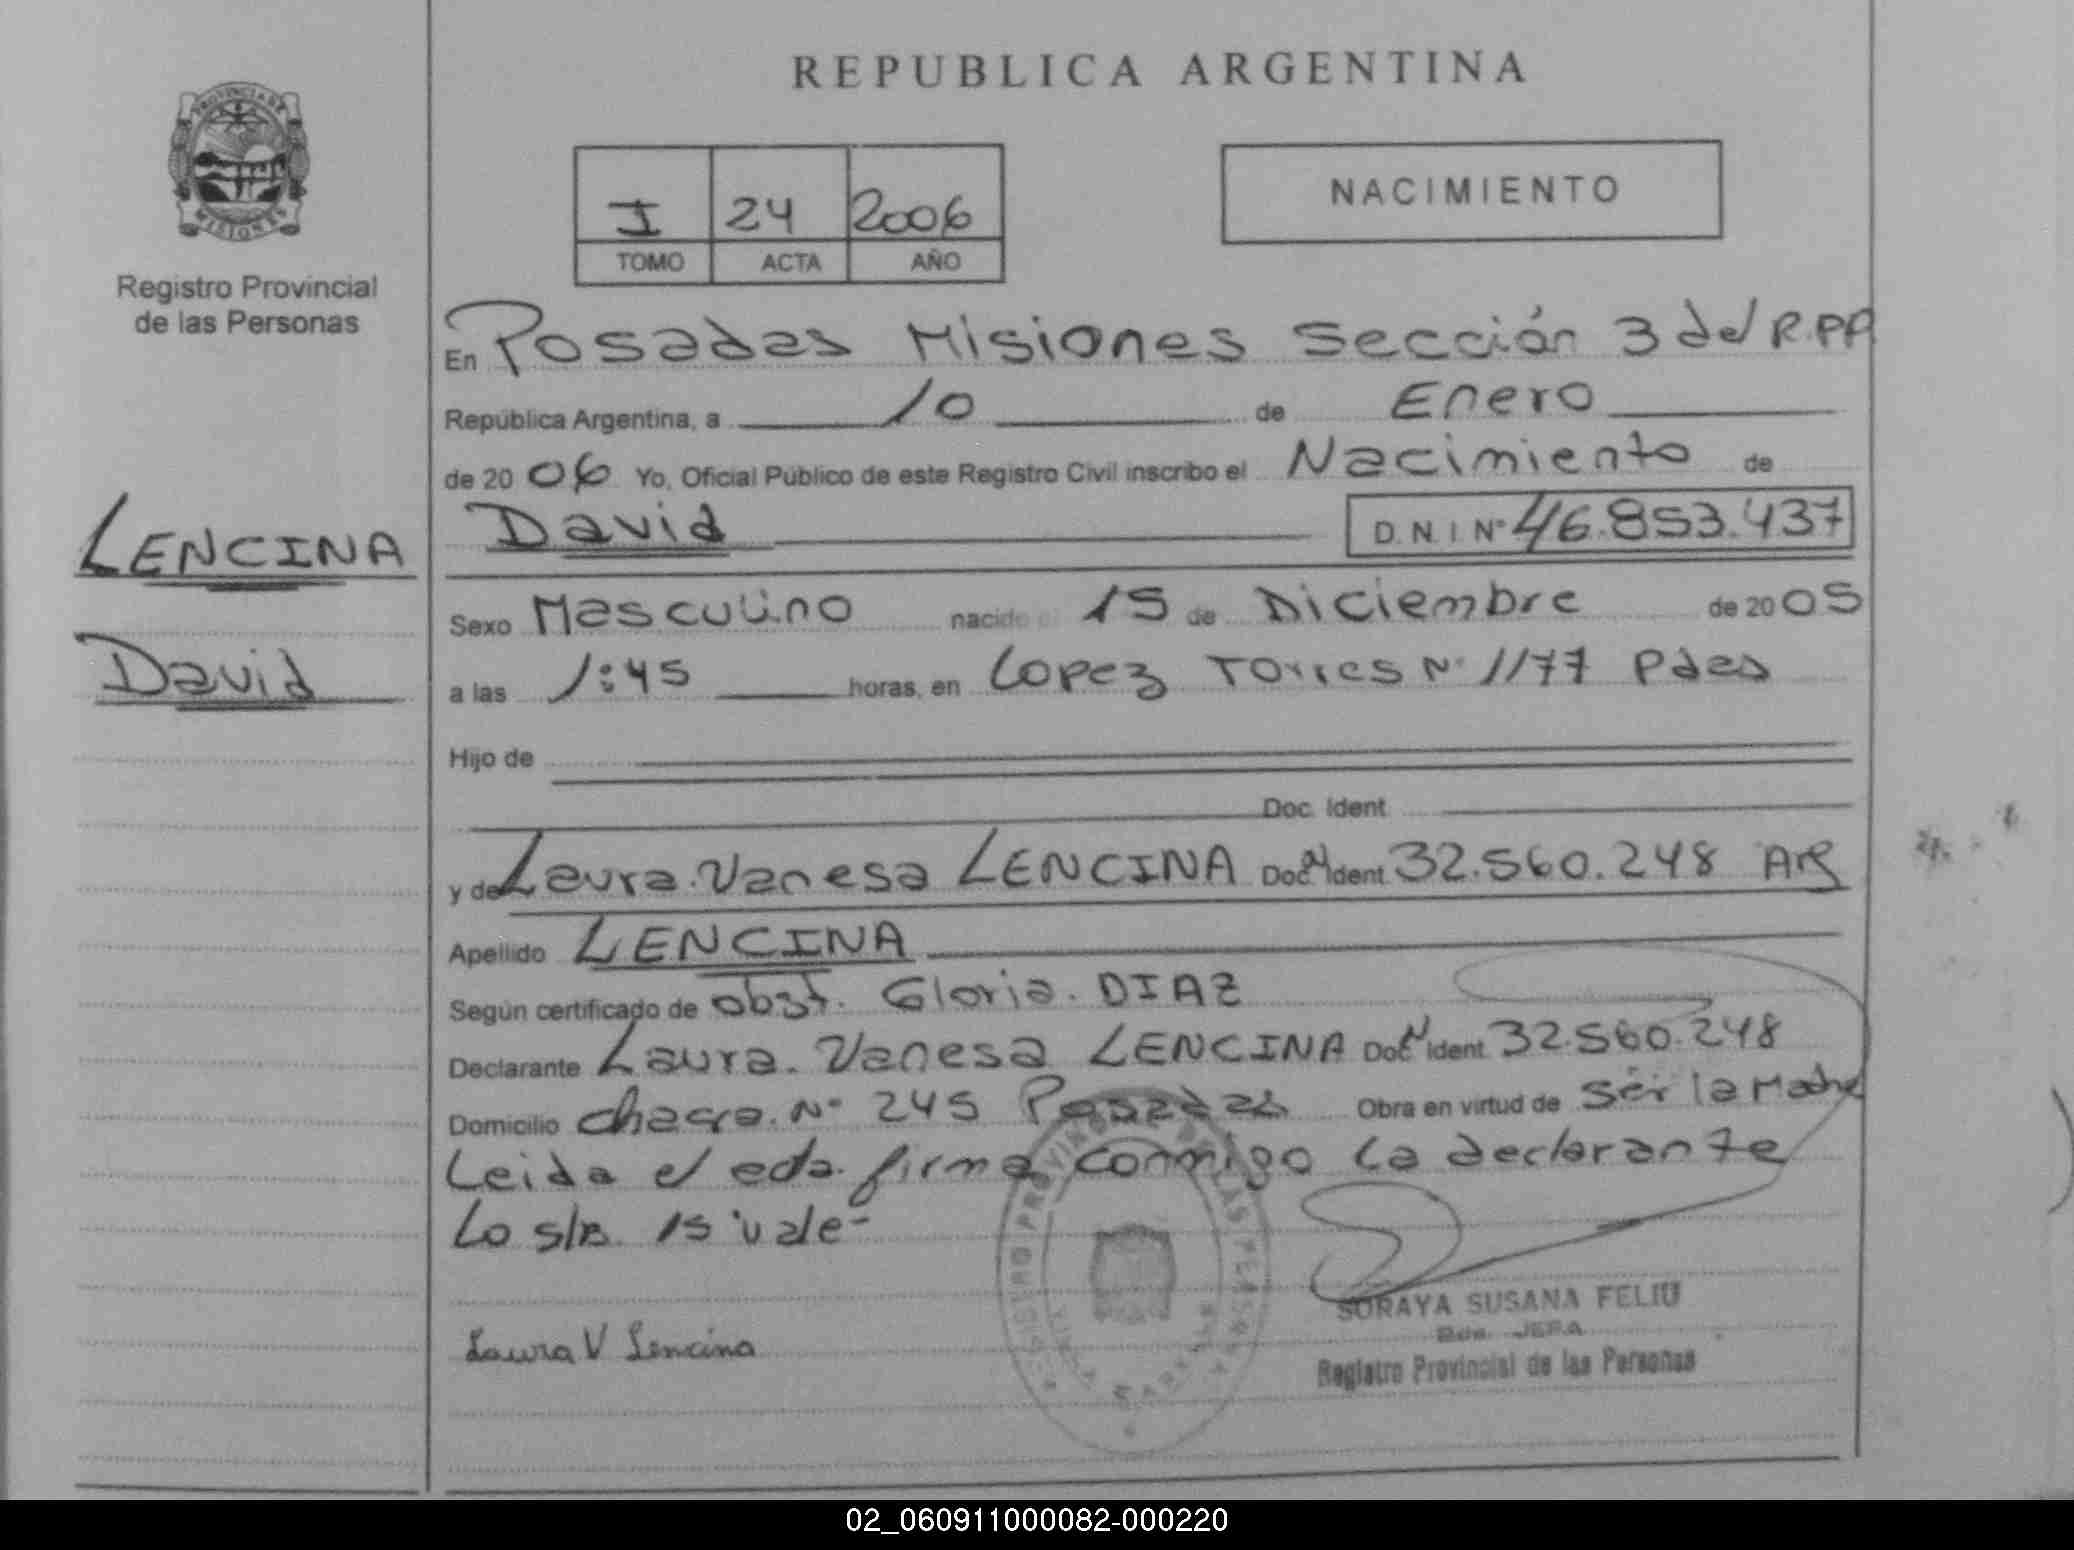 REPUBLICA ARGENTINA
PROVINCIA DE
MISIONES
Registro Provincial
de las Personas
I 24 2006
TOMO ACTA AÑO
NACIMIENTO
LENCINA
David
En Posadas Misiones Sección 3 del R.PP
República Argentina, a 10 de Enero
de 2006 Yo, Oficial Público de este Registro Civil inscribo el Nacimiento de
David D.N.I Nº 46.853.437
Sexo Masculino nacido el 15 de Diciembre de 2005
a las 1:45 horas, en Lopez Torres Nº 1177 Pdas
Hijo de
Doc. Ident
y de Laura Vanesa LENCINA Doc. Ident 32.560.248 Arg
Apellido LENCINA
Según certificado de obst. Gloria DIAZ
Declarante Laura Vanesa LENCINA Doc Ident 32.560.248
Domicilio chacra Nº 245 Posadas Obra en virtud de ser la Madre
Leida el acta firma conmigo la declarante
Lo s/B 15 vale-
Laura V Lencina
SORAYA SUSANA FELIU
JEFA
Registro Provincial de las Personas
02_060911000082-000220